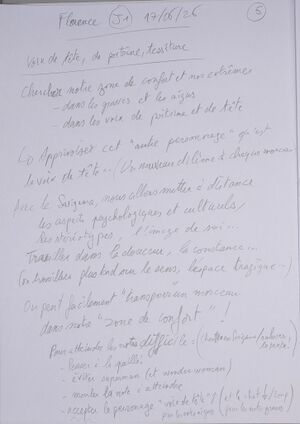 Florence (J1) 17/06/26 (5)
Voix de tête, de poitrine, tessiture
Chercher notre zone de confort et nos extrêmes
- dans les graves et les aigus
- dans les voix de poitrine et de tête
Apprivoiser cet "autre personnage" qu'est
la voix de tête... (Un nouveau dilemme à chaque morceau
Avec le Surigana, nous allons mettre à distance
les aspects psychologiques et culturels,
les stéréotypes, l'image de soi...
Travailler dans la douceur, la constance...
(on travaillera plus tard sur le sens, l'espace tragique -)
On peut facilement "transposer" un morceau
dans notre "zone de confort" !
Pour atteindre les notes difficiles :
- penser à la
- éviter superman (et wonder woman)
- monter la note à atteindre
- accepter le personnage "voix de tête"
pour les notes aigues (pour les notes graves)